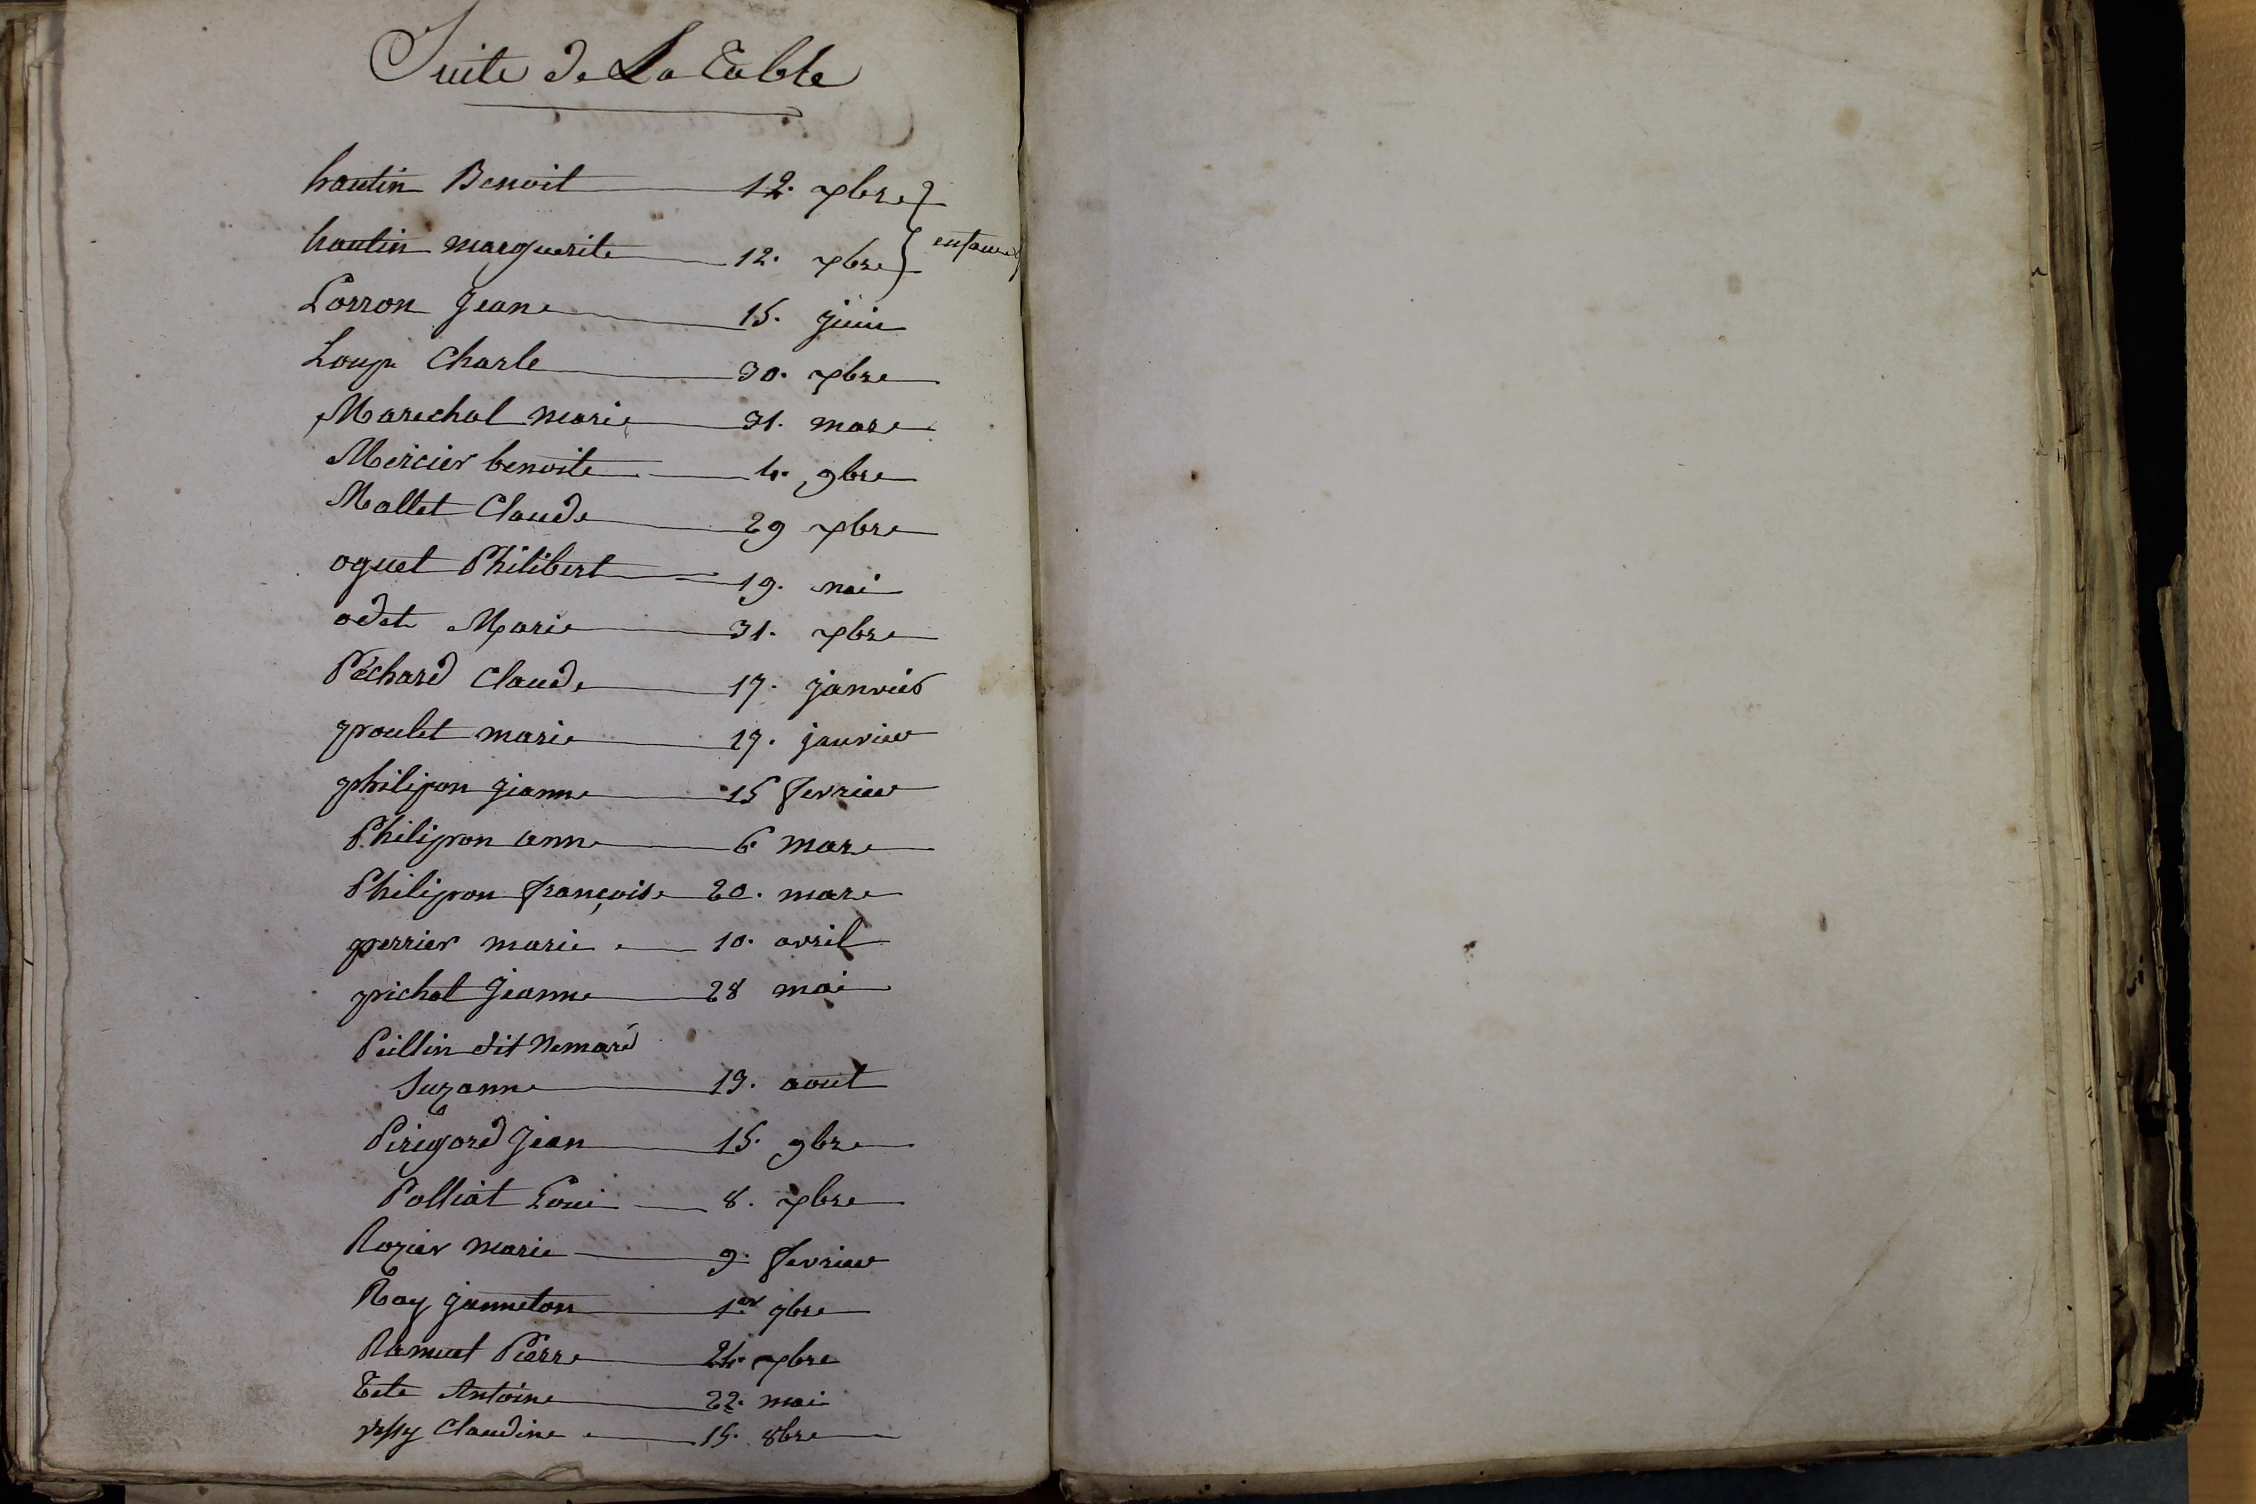 Suite de La Table
hautin Benoit 12. xbre
hautin marguerite 12. xbre } enfans
Lorron Jeane 15. juin
Loup Charle 30. xbre
Marechal marie 31. mars
Mercier benoite 4. 9bre
Mallet Claude 29 xbre
oguet Philibert 19. mai
odet Marie 31. xbre
Péchard Claude 17. janvier
poulet marie 17. janvier
philipon jeanne 15 fevrier
Philipon anne 6 mars
Philipon françoise 20. mars
perrier marie 10. avril
pichat Jeanne 28 mai
Peillin dit
Suzanne 19. aout
Périgord Jean 15. 9bre
Polliat Loui 8. xbre
Rozier marie 9. fevrier
Ray janneton 1er 9bre
Ramuet Pierre 24. xbre
Tete Antoine 22. mai
Claudine 15. 8bre